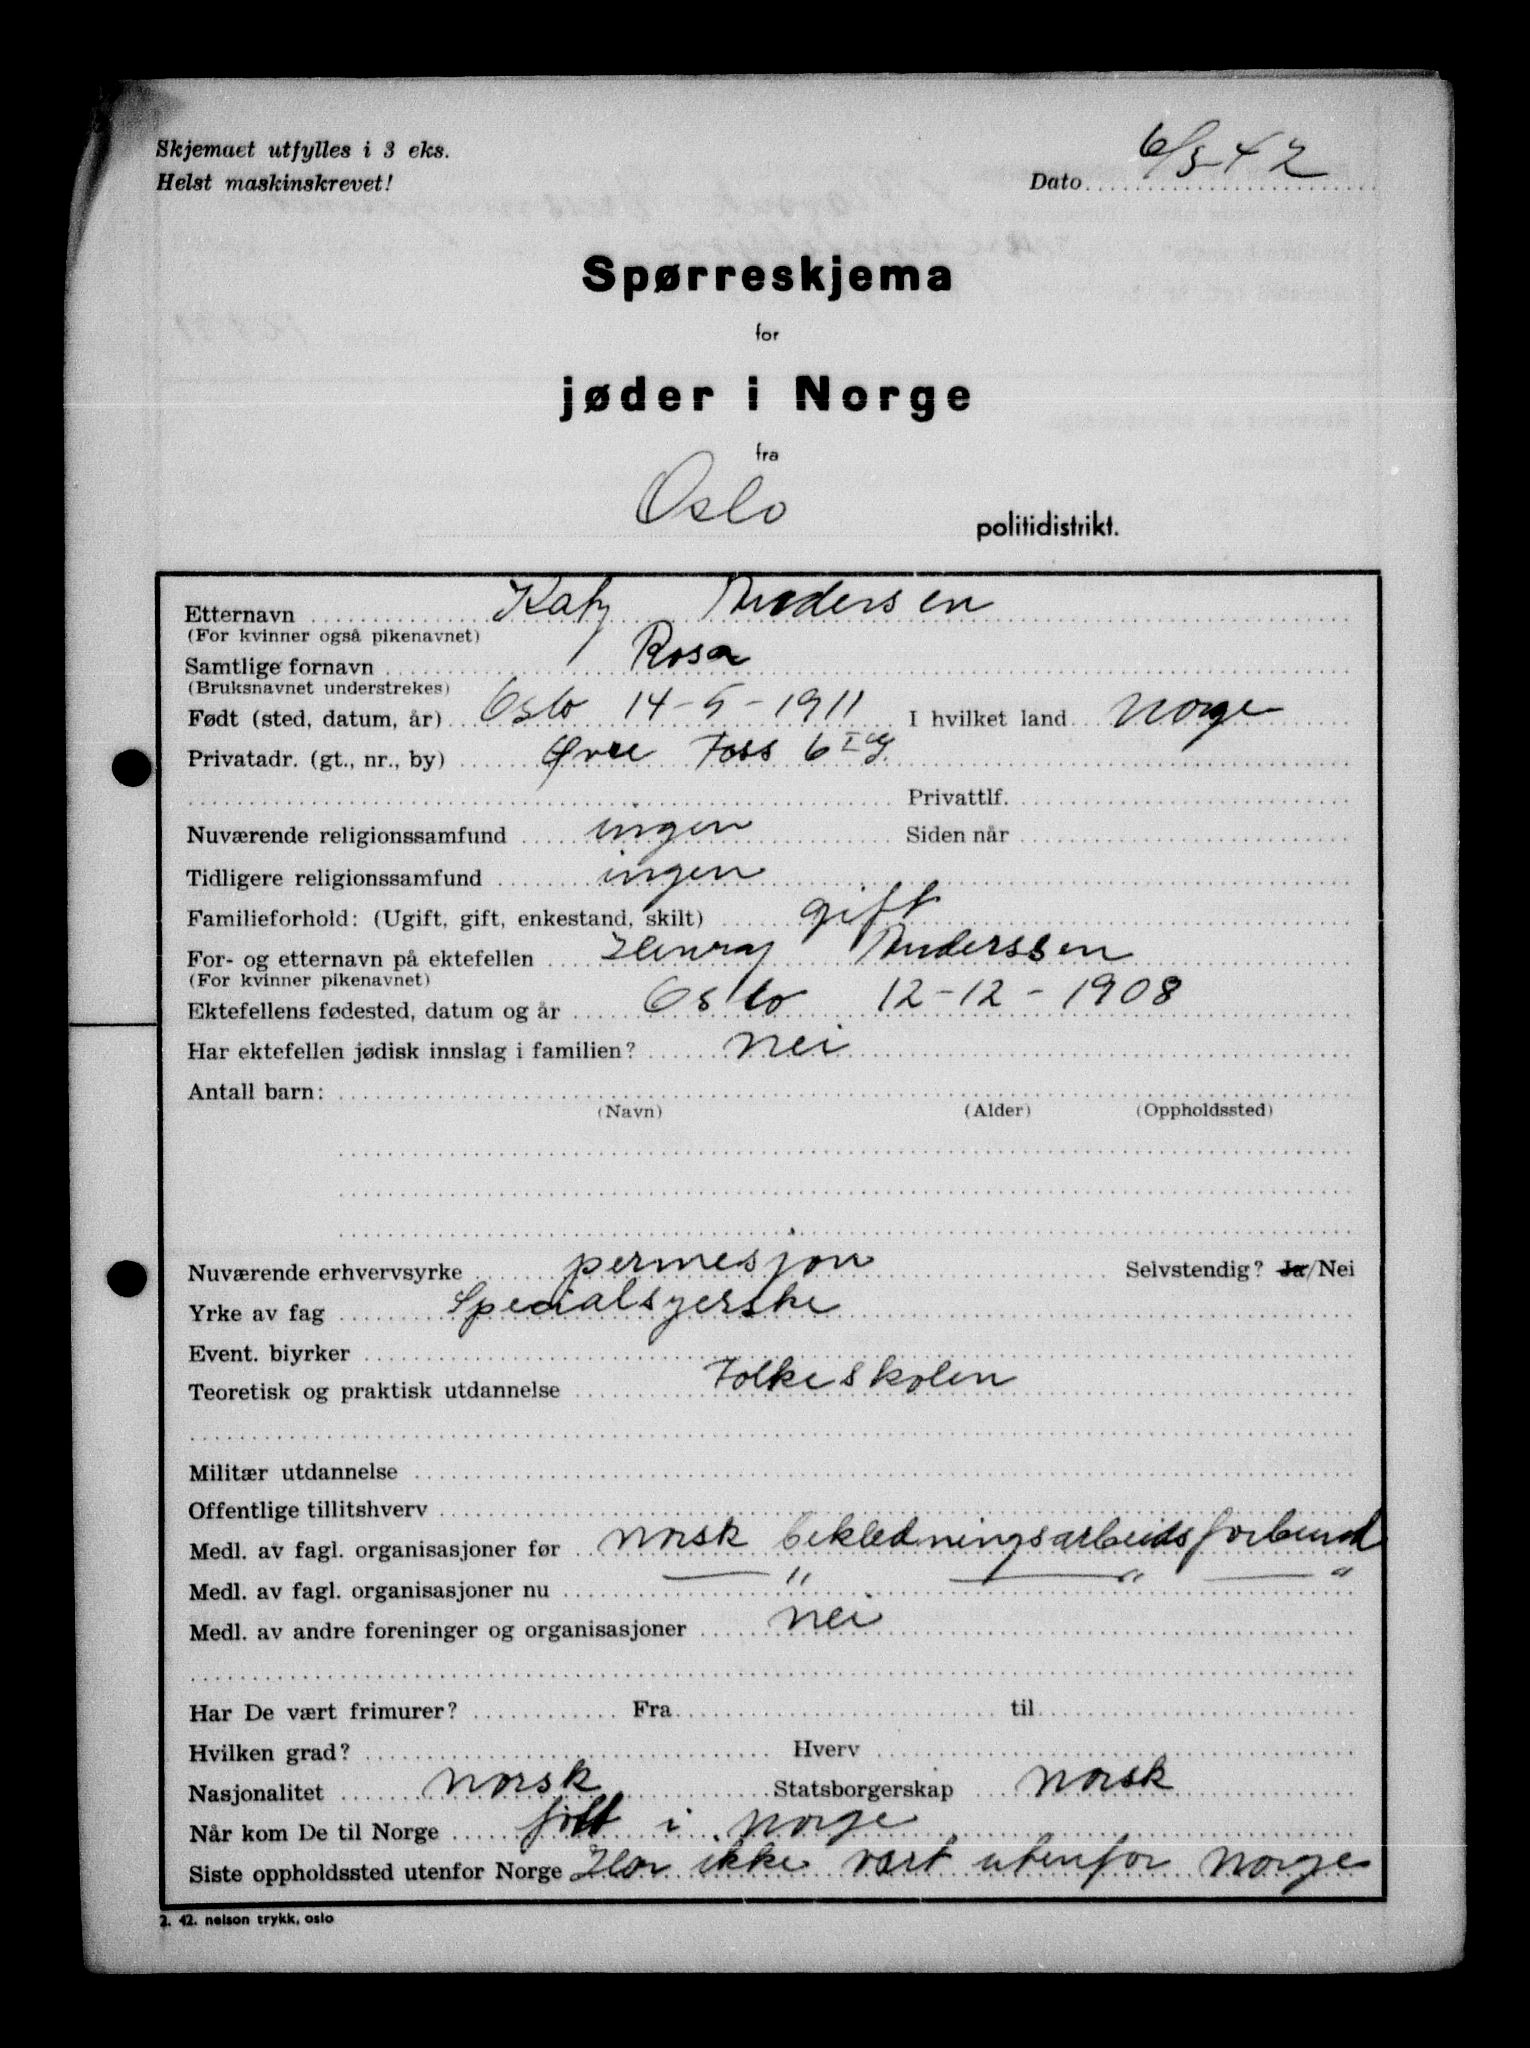 Skjemaet utfylles i 3 eks.
Helst maskinskrevet!
Dato 6/5 42
Spørreskjema
for
jøder i Norge
fra
Oslo politidistrikt.
Etternavn Katz Andersen
(For kvinner også pikenavnet)
Samtlige fornavn Rosa
(Bruksnavnet understrekes)
Født (sted, datum, år) Oslo 14-5-1911 I hvilket land Norge
Privatadr. (gt., nr., by) Øvre Foss 6 I
Privattlf.
Nuværende religionssamfund ingen Siden når
Tidligere religionssamfund ingen
Familieforhold: (Ugift, gift, enkestand, skilt) gift
For- og etternavn på ektefellen Henry Anderssen
(For kvinner pikenavnet)
Ektefellens fødested, datum og år Oslo 12-12-1908
Har ektefellen jødisk innslag i familien? Nei
Antall barn:
(Navn) (Alder) (Oppholdssted)
Nuværende erhvervsyrke permesjon Selvstendig? Ja/Nei
Yrke av fag Specialsyerske
Event. biyrker
Teoretisk og praktisk utdannelse Folkeskolen
Militær utdannelse
Offentlige tillitshverv
Medl. av fagl. organisasjoner før Norsk bekledningsarbeidsforbund
Medl. av fagl. organisasjoner nu — " — " — "
Medl. av andre foreninger og organisasjoner Nei
Har De vært frimurer? Fra til
Hvilken grad? Hverv
Nasjonalitet Norsk Statsborgerskap Norsk
Når kom De til Norge født i Norge
Siste oppholdssted utenfor Norge Har ikke vært utenfor Norge
2. 42. nelson trykk, oslo